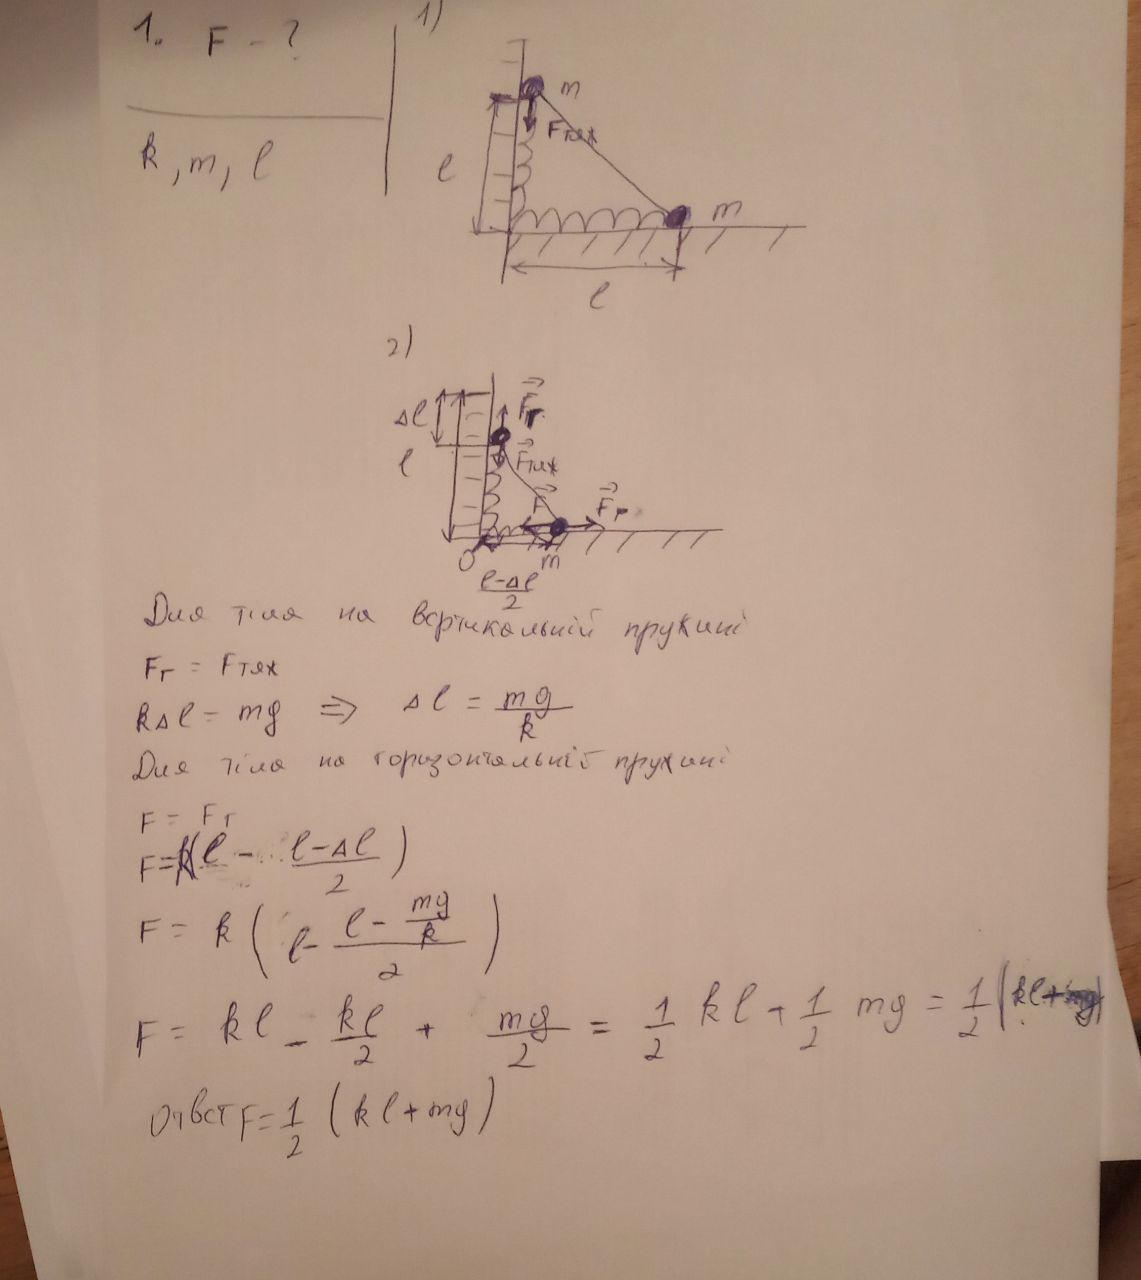 1. F - ?
k, m, l
1)
m
Fтяж
l
m
l
2)
Δl
Fг
l
Fтяж
F
Fг
O
m
(l-Δl)/2
Для тіла на вертикальній пружині
Fг = Fтяж
kΔl = mg ⇒ Δl = mg/k
Для тіла на горизонтальній пружині
F = Fг
F = k(l - (l-Δl)/2)
F = k(l - (l - mg/k)/2)
F = kl - kl/2 + mg/2 = 1/2 kl + 1/2 mg = 1/2 (kl+mg)
Ответ F = 1/2 (kl+mg)